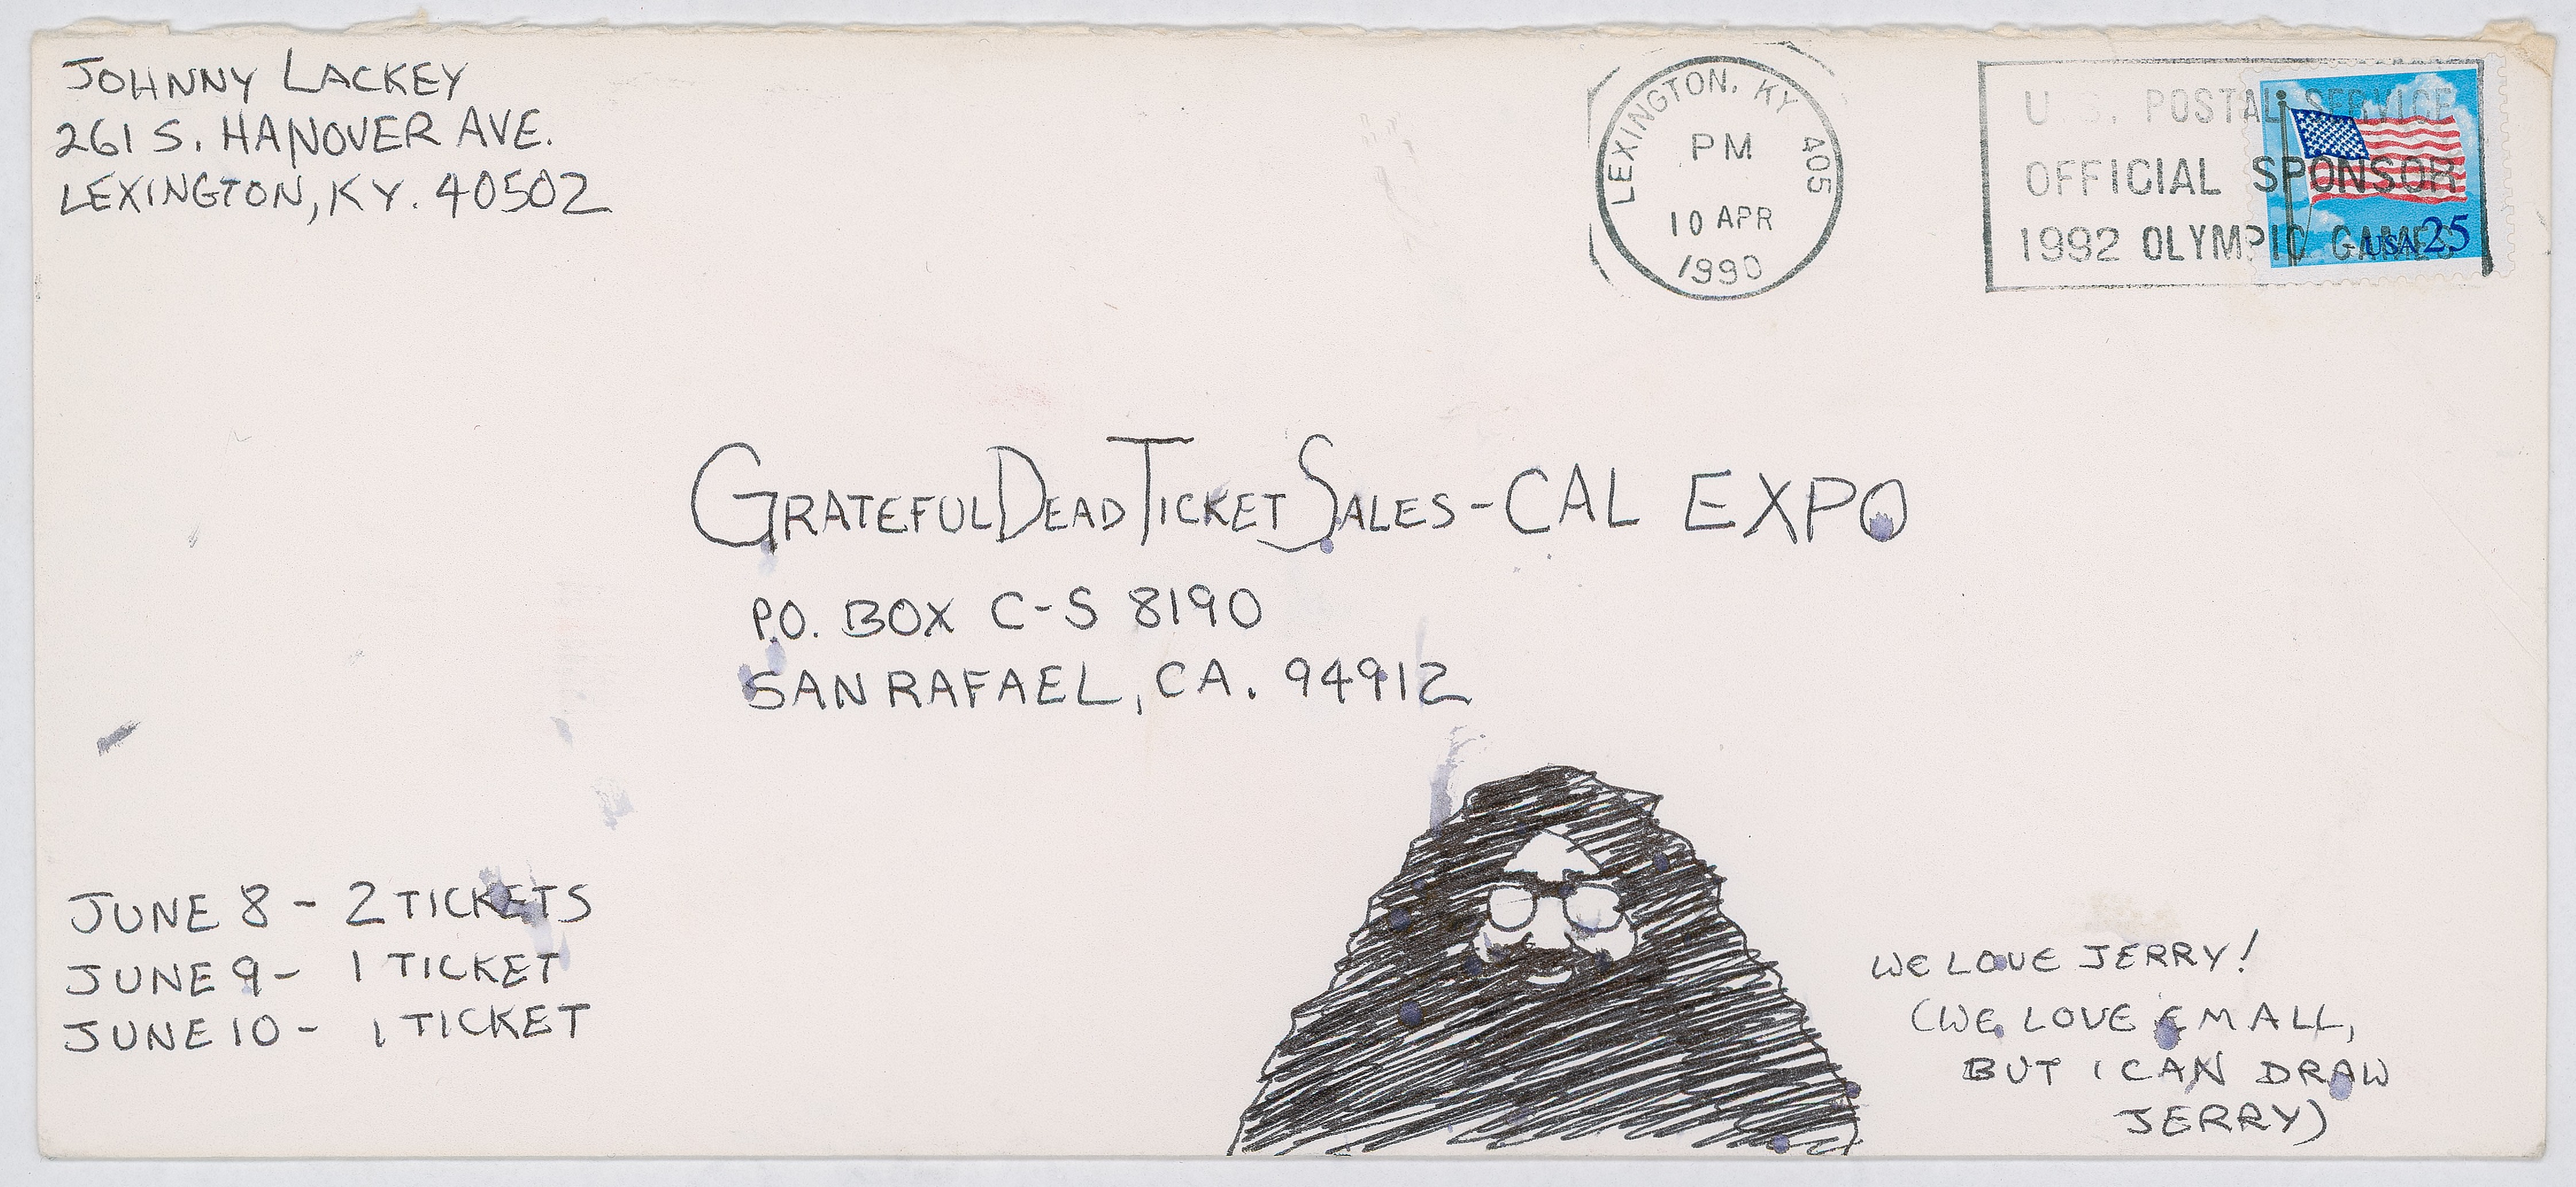 JOHNNY LACKEY
261 S. HANOVER AVE.
LEXINGTON, KY. 40502
LEXINGTON, KY 405
PM
10 APR
1990
U.S. POSTAL SERVICE
OFFICIAL SPONSOR
1992 OLYMPIC GAMES
USA 25
GRATEFUL DEAD TICKET SALES - CAL EXPO
P.O. BOX C-S 8190
SAN RAFAEL, CA. 94912
JUNE 8 - 2 TICKETS
JUNE 9 - 1 TICKET
JUNE 10 - 1 TICKET
WE LOVE JERRY!
(WE LOVE EM ALL,
BUT I CAN DRAW
JERRY)